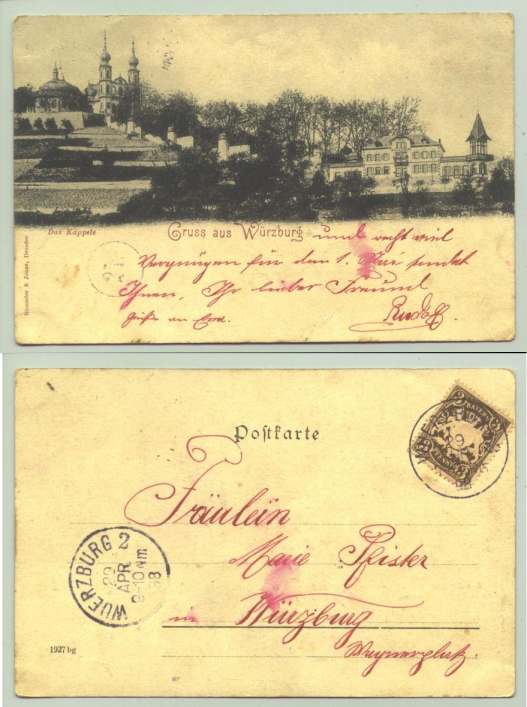 Das Käppele
Gruss aus Würzburg und recht viel
Vergnügen für den 1. Mai sendet
Ihnen, Ihr lieber Freund
Rudolf
Grüße an
Postkarte
2
29
Fräulein
Marie Pfister
in Würzburg
WUERZBURG 2
29
APR
8-10 Nm
98
1927 bg